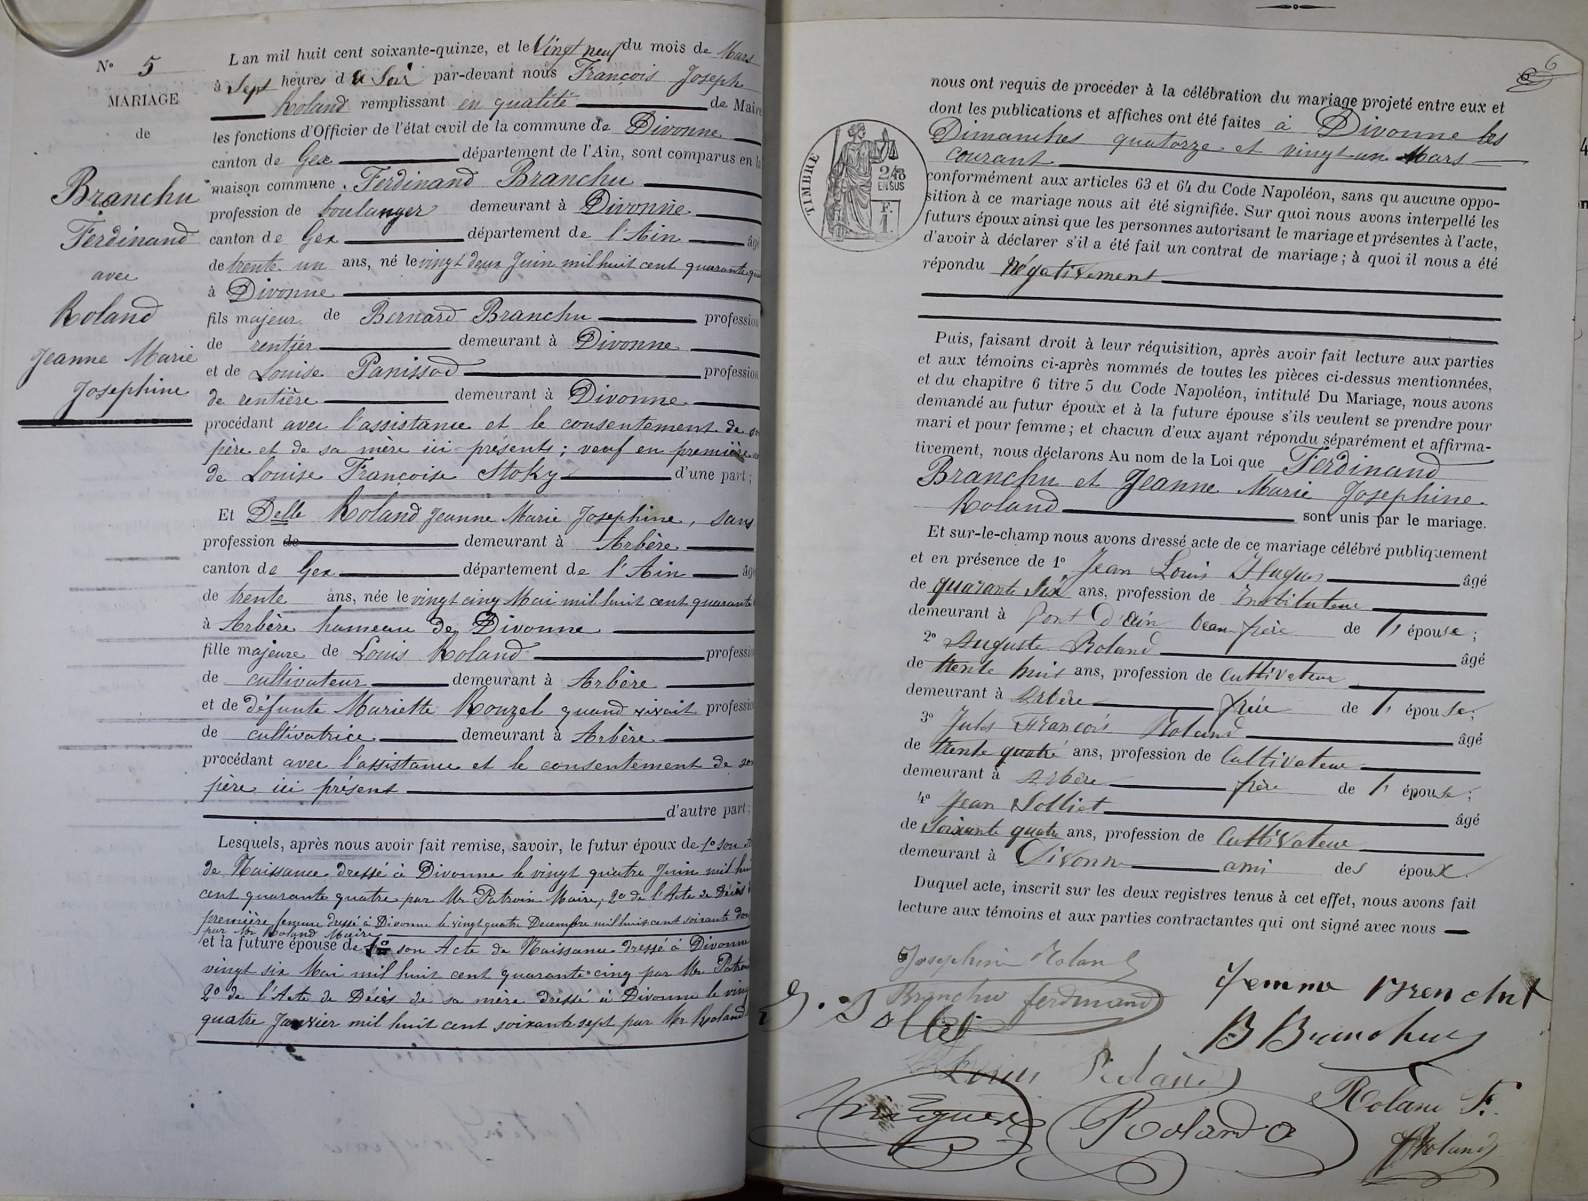 N° 5
MARIAGE
de
Branchu
Ferdinand
avec
Roland
Jeanne Marie
Josephine
L'an mil huit cent soixante-quinze, et le vingt neuf du mois de Mars
à Sept heures du Soir par-devant nous François Joseph
Roland remplissant en qualité de Maire
les fonctions d'Officier de l'état civil de la commune de Divonne
canton de Gex département de l'Ain, sont comparus en la
maison commune. Ferdinand Branchu
profession de boulanger demeurant à Divonne
canton de Gex département de l'Ain âgé
de trente un ans, né le vingt deux Juin mil huit cent quarante
à Divonne
fils majeur de Bernard Branchu profession
de rentier demeurant à Divonne
et de Louise Panissod profession
de rentière demeurant à Divonne
procédant avec l'assistance et le consentement de
père et de sa mère ici présents ; veuf en première
de Louise Françoise Stoky d'une part ;
Et Delle Roland Jeanne Marie Josephine, sans
profession de demeurant à Arbère
canton de Gex département de l'Ain âgé
de trente ans, née le vingt cinq Mai mil huit cent quarante
à Arbère hameau de Divonne
fille majeure de Louis Roland profession
de cultivateur demeurant à Arbère
et de défunte Mariette Rouzel quand vivait profession
de cultivatrice demeurant à Arbère
procédant avec l'assistance et le consentement de son
père ici présent
d'autre part ;
Lesquels, après nous avoir fait remise, savoir, le futur époux de 1° son
de Naissance dressé à Divonne le vingt quatre Juin mil huit
cent quarante quatre par Mr Patroin Maire, 2° de l'Acte de Décès
première femme dressé à Divonne le vingt quatre Decembre mil huit cent soixante
par Mr Roland Maire
et la future épouse de 1° son Acte de Naissance dressé à Divonne
vingt six Mai mil huit cent quarante-cinq par Mr
2° de l'Acte de Décès de sa mère dressé à Divonne le vingt
quatre Janvier mil huit cent soixante sept par Mr Roland
6
TIMBRE
2/10
EN SUS
F.
1.
nous ont requis de procéder à la célébration du mariage projeté entre eux et
dont les publications et affiches ont été faites à Divonne les
Dimanches quatorze et vingt un Mars
courant
conformément aux articles 63 et 64 du Code Napoléon, sans qu'aucune oppo-
sition à ce mariage nous ait été signifiée. Sur quoi nous avons interpellé les
futurs époux ainsi que les personnes autorisant le mariage et présentes à l'acte,
d'avoir à déclarer s'il a été fait un contrat de mariage ; à quoi il nous a été
répondu négativement
Puis, faisant droit à leur réquisition, après avoir fait lecture aux parties
et aux témoins ci-après nommés de toutes les pièces ci-dessus mentionnées,
et du chapitre 6 titre 5 du Code Napoléon, intitulé Du Mariage, nous avons
demandé au futur époux et à la future épouse s'ils veulent se prendre pour
mari et pour femme ; et chacun d'eux ayant répondu séparément et affirma-
tivement, nous déclarons Au nom de la Loi que Ferdinand
Branchu et Jeanne Marie Josephine
Roland sont unis par le mariage.
Et sur-le-champ nous avons dressé acte de ce mariage célébré publiquement
et en présence de 1° Jean Louis Hugues âgé
de quarante six ans, profession de Instituteur
demeurant à Pont d'Ain beau frère de l' épouse ;
2° Auguste Roland âgé
de trente huit ans, profession de Cultivateur
demeurant à Arbère frère de l' épouse ;
3° Jules François Roland âgé
de trente quatre ans, profession de Cultivateur
demeurant à Arbère frère de l' épouse ;
4° Jean Solliet âgé
de Soixante quatre ans, profession de Cultivateur
demeurant à Divonne ami des époux.
Duquel acte, inscrit sur les deux registres tenus à cet effet, nous avons fait
lecture aux témoins et aux parties contractantes qui ont signé avec nous
Josephine Roland
Branchu ferdinand
femme Branchu
B Branchu
Roland
Roland F.
Roland